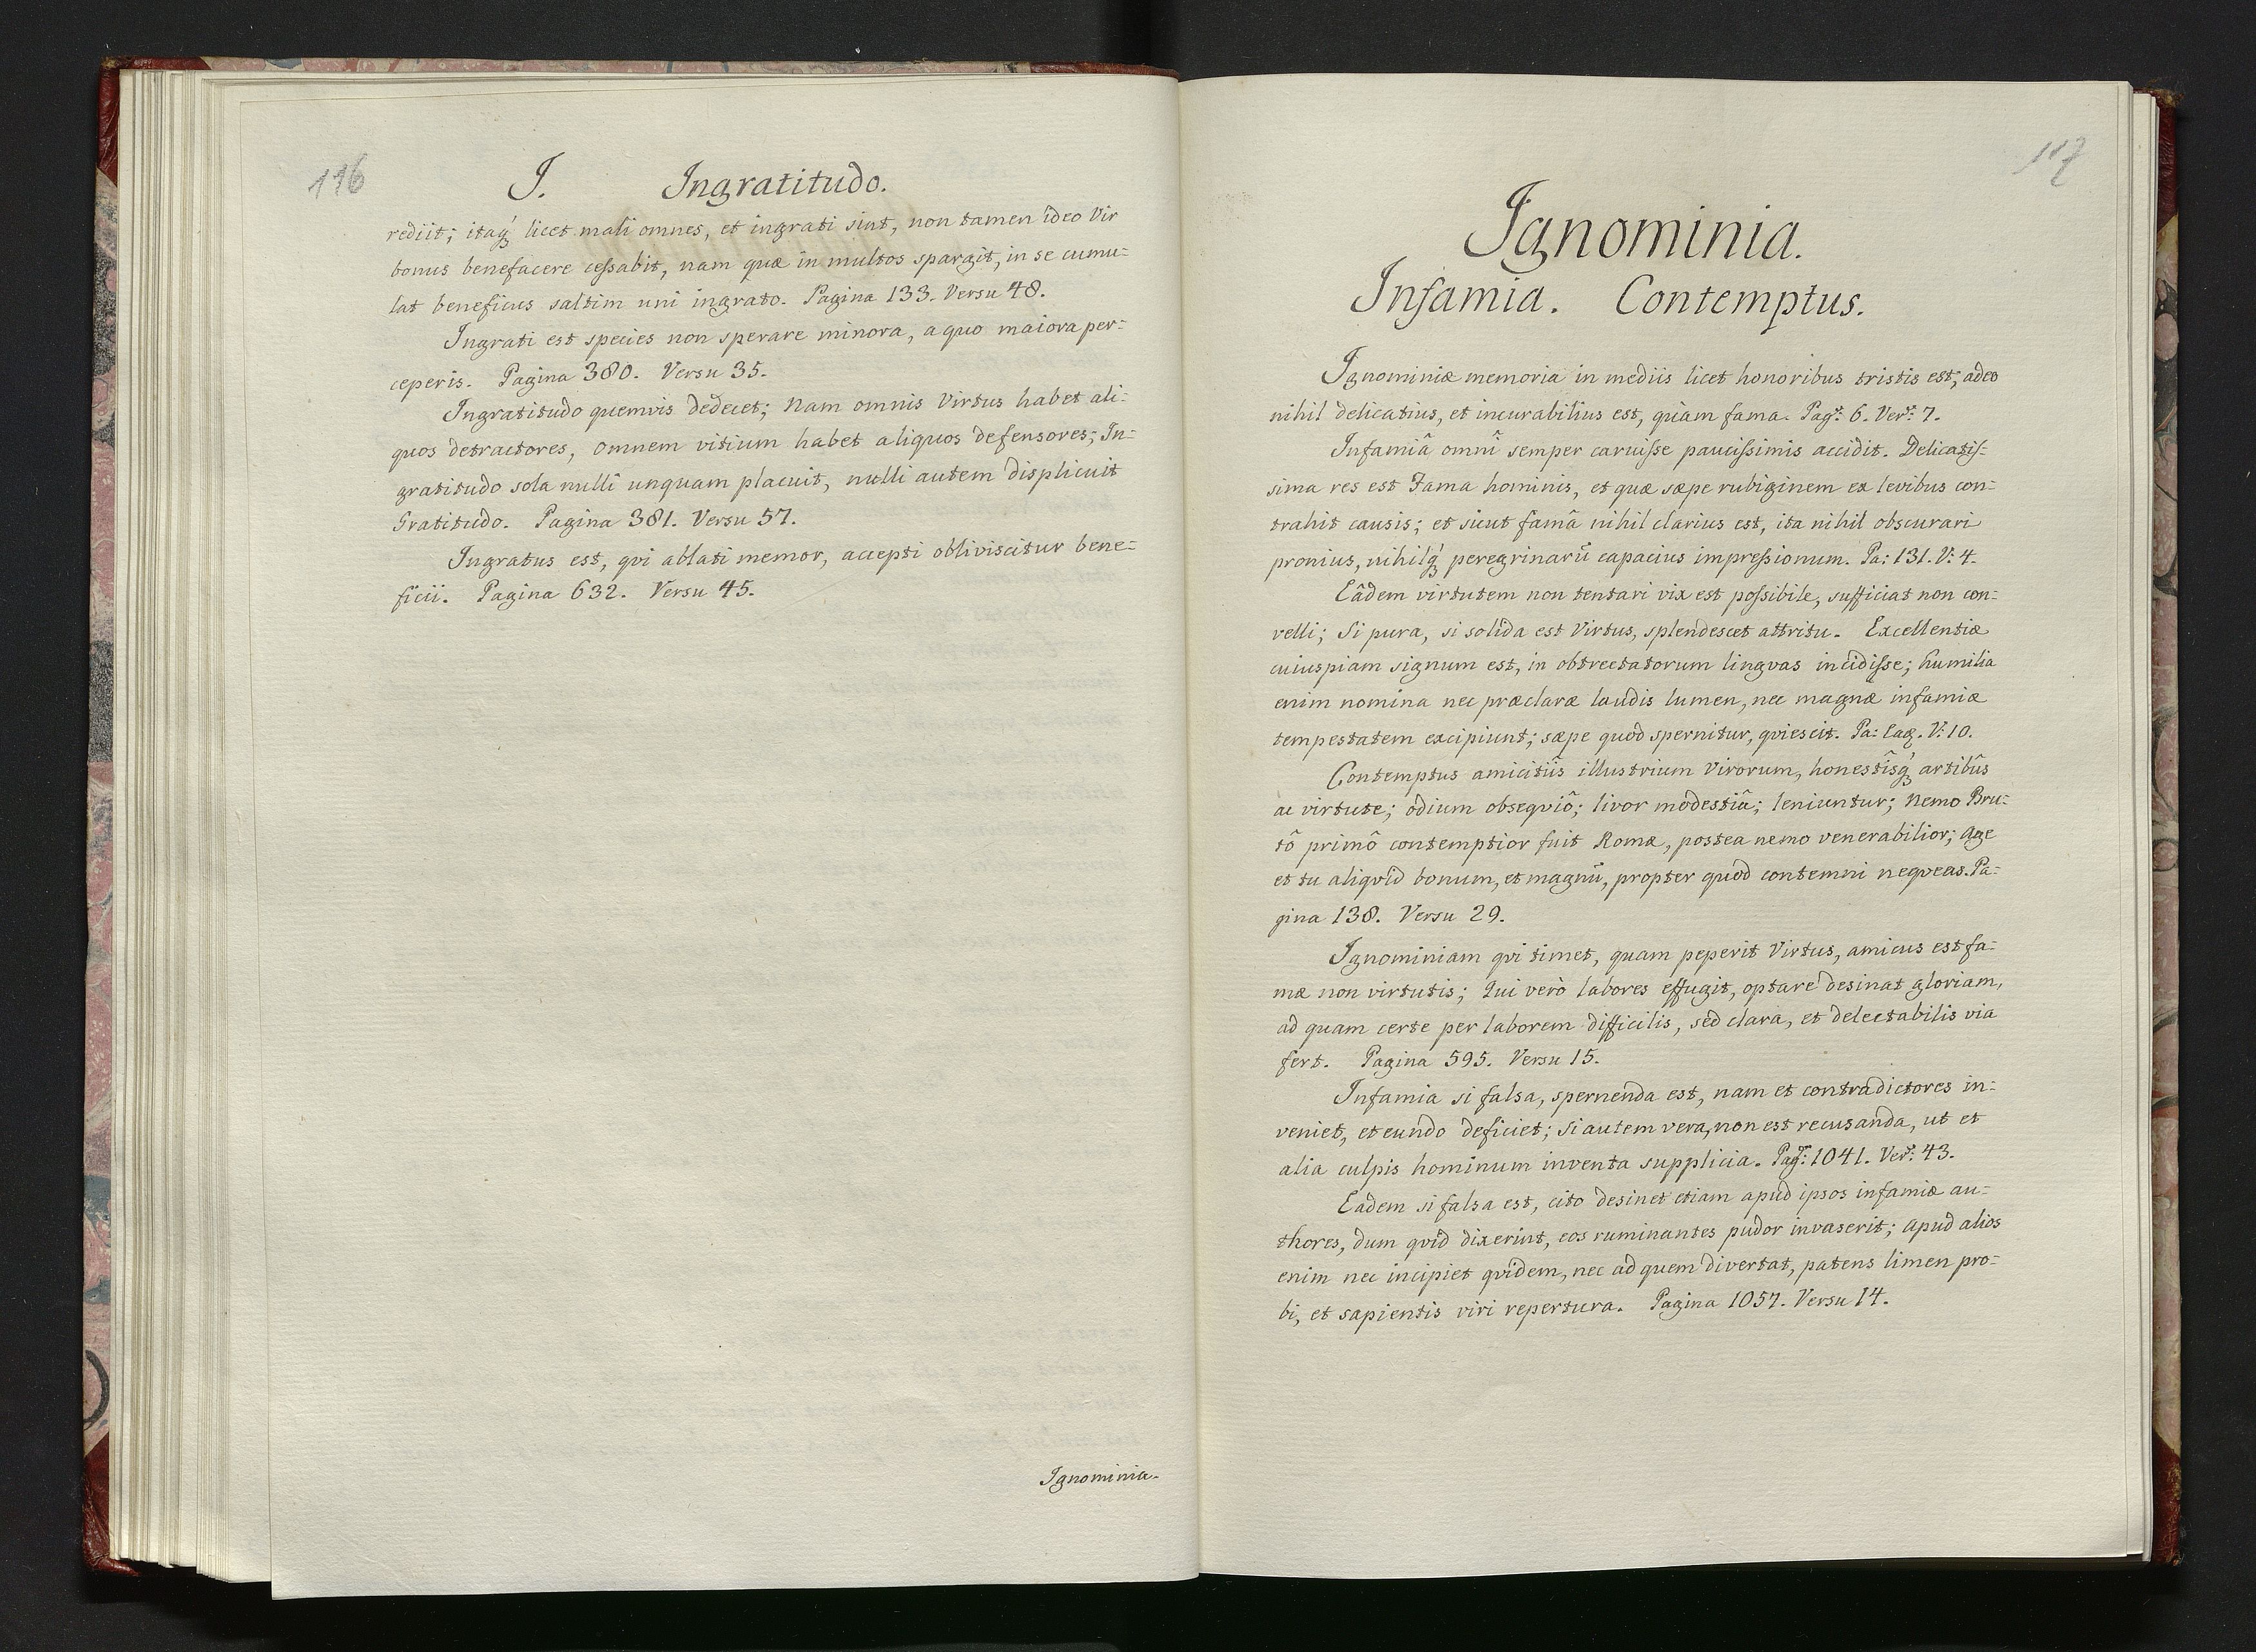 116
I. Ingratitudo.
rediit; itaq́ꝫ licet mali omnes, et ingrati sint, non tamen ideo Vir
bonus benefacere ceſsabit, nam quæ in multos spargit, in se cumu=
lat beneficus saltim uni ingrato. Pagina 133. Versu 48.
Ingrati est species non sperare minora, a quo maiora per=
ceperis. Pagina 380. Versu 35.
Ingratitudo quemvis dedecet; Nam omnis Virtus habet ali=
quos detractores, omnem vitium habet aliquos defensores; In=
gratitudo sola nulli unquam placuit, nulli autem displicuit
Gratitudo. Pagina 381. Versu 57.
Ingratus est, qvi ablati memor, accepti obliviscitur bene=
ficii. Pagina 632. Versu 45.
Ignominia.
117
Ignominia.
Infamia. Contemptus.
Ignominiæ memoria in mediis licet honoribus tristis est; adeo
nihil delicatius, et incurabilius est, quàm fama. Pagᵃ: 6. Verᵘ: 7.
Infamiâ omnî semper caruiſse pauciſsimis accidit. Delicatiſ=
sima res est Fama hominis, et quæ sæpe rubiginem ex levibus con=
trahit causis; et sicut famâ nihil clarius est, ita nihil obscurari
pronius, nihilq́ꝫ peregrinarū capacius impreſsionum. Pa: 131. V: 4.
Eâdem virtutem non tentari vix est poſsibile, sufficiat non con=
velli; Si pura, si solida est Virtus, splendescet attritu. Excellentiæ
cuiuspiam signum est, in obtrectatorum lingvas incidiſse; humilia
enim nomina nec præclaræ laudis lumen, nec magnæ infamiæ
tempestatem excipiunt; sæpe quod spernitur, qviescit. Pa: Eaq. V: 10.
Contemptus amicitiîs illustrium Virorum, honestîsq́ꝫ artibûs
ac virtute; odium obseqviô; livor modestiâ; leniuntur; Nemo Bru=
tô primô contemptior fuit Romæ, postea nemo venerabilior; Age
et tu aliqvid bonum, et magnū, propter quod contemni neqveas. Pa=
gina 138. Versu 29.
Ignominiam qvi timet, quam peperit Virtus, amicus est fa=
mæ non virtutis; Qui verò labores effugit, optare desinat gloriam,
ad quam certe per laborem difficilis, sed clara, et delectabilis via
fert. Pagina 595. Versu 15.
Infamia si falsa, spernenda est, nam et contradictores in=
veniet, et eundo deficiet; si autem vera, non est recusanda, ut et
alia culpis hominum inventa supplicia. Pagᵃ: 1041. Verᵘ: 43.
Eadem si falsa est, cito desinet etiam apud ipsos infamiæ au=
thores, dum qvid dixerint, eos ruminantes pudor invaserit; Apud alios
enim nec incipiet qvidem, nec ad quem divertat, patens limen pro=
bi, et sapientis viri repertura. Pagina 1057. Versu 14.